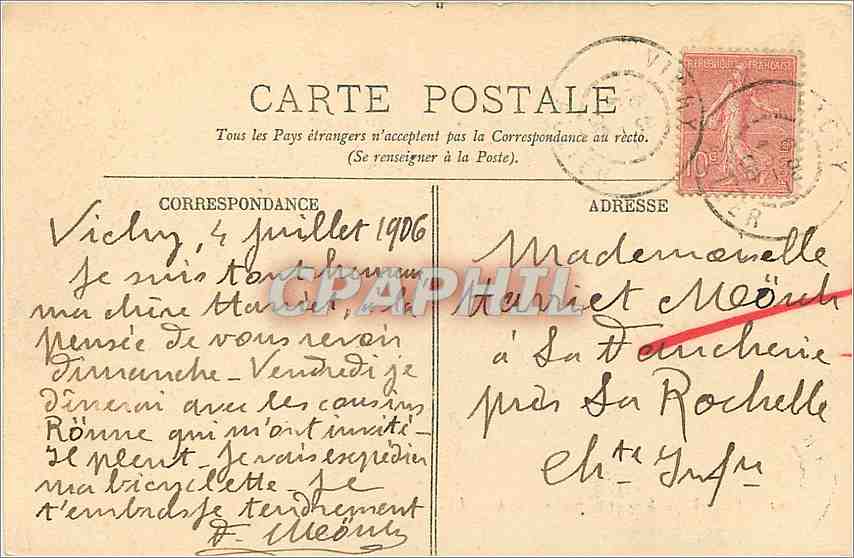 VICHY
REPUBLIQUE FRANÇAISE
10c
POSTES
VICHY
ALLIER
CARTE POSTALE
Tous les Pays étrangers n'acceptent pas la Correspondance au recto.
(Se renseigner à la Poste).
CORRESPONDANCE
Vichy, 4 juillet 1906
Je suis tout heureux
ma chère Harriet, à la
pensée de vous revoir
dimanche - Vendredi je
dînerai avec les cousins
Rönne qui m'ont invité -
Il pleut - Je vais expédier
ma bicyclette - Je
t'embrasse tendrement
CPAPHIL
ADRESSE
Mademoiselle
Harriet
à La
près La Rochelle
Chte Infre